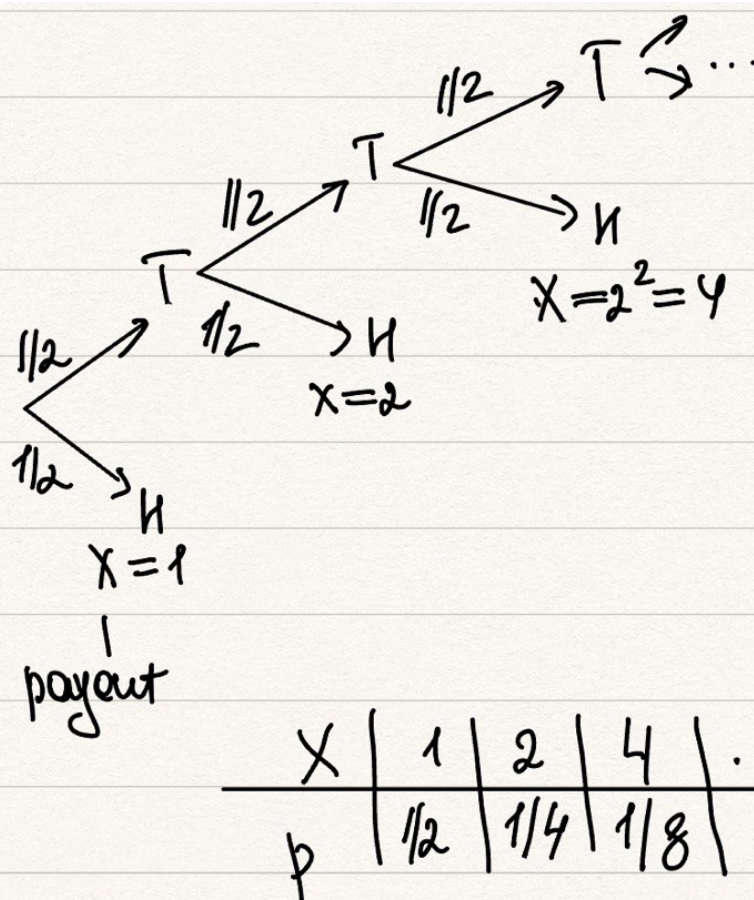 1/2 T ...
1/2 T 1/2 H
X=2²=4
1/2 T 1/2 H
X=2
1/2 H
X=1
payout
X | 1 | 2 | 4 | .
p | 1/2 | 1/4 | 1/8 |